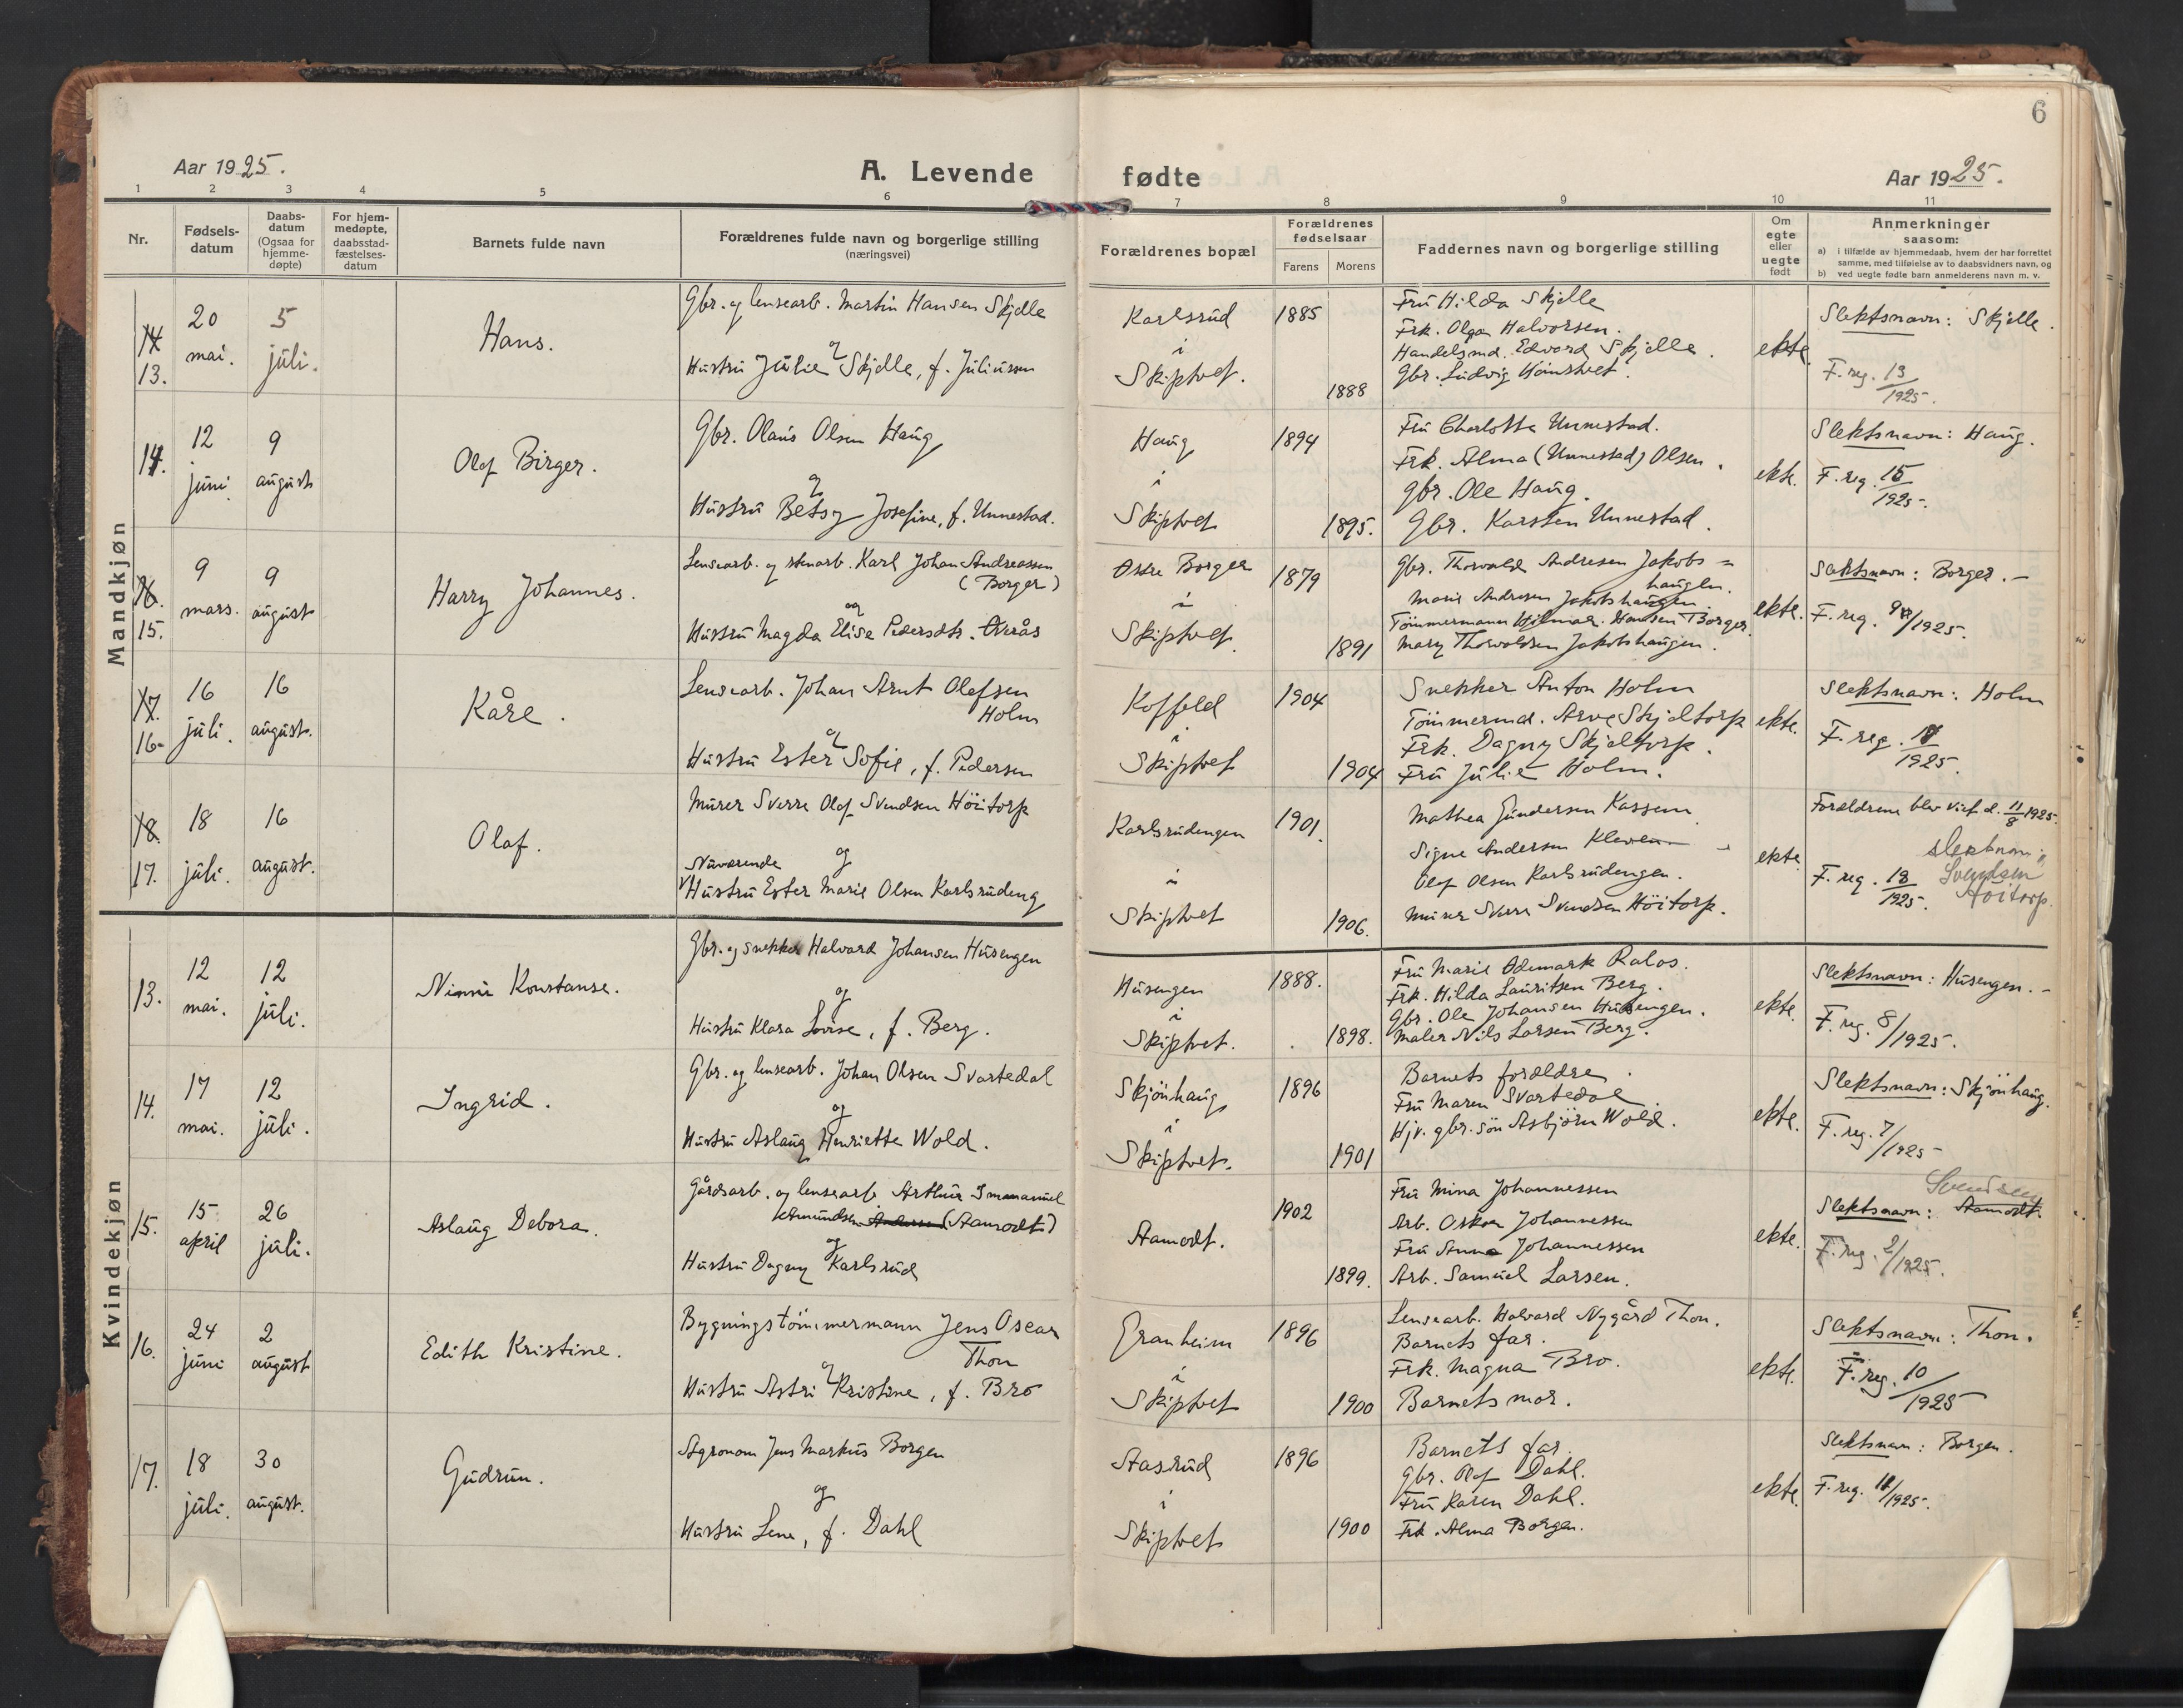 6
Aar 1925.
A. Levende fødte
Aar 1925.
1 2 3 4 5 6 7 8 9 10 11
Nr.
Fødsels-
datum
Daabs-
datum
(Ogsaa for
hjemme-
døpte)
For hjem-
medøpte,
daabsstad-
fæstelses-
datum
Barnets fulde navn
Forældrenes fulde navn og borgerlige stilling
(næringsvei)
Forældrenes bopæl
Forældrenes
fødselsaar
Farens Morens
Faddernes navn og borgerlige stilling
Om
egte
eller
uegte
født
Anmerkninger
saasom:
a) i tilfælde av hjemmedaab, hvem der har forrettet
samme, med tilføielse av to daabsvidners navn, og
b) ved uegte fødte barn anmelderens navn m. v.
Mandkjøn
14
13.
20
mai.
5
juli.
Hans.
Gbr. og lensearb. Martin Hansen Skjelle
og
Hustru Julie Skjelle, f. Juliussen
Karlsrud
i
Skiptvet.
1885
1888
Fru Hilda Skjelle
Frk. Olga Halvorsen.
Handelsmd. Edvard Skjelle.
Gbr. Ludvig
ekte
Slektsnavn: Skjelle.
F. reg. 13/1925.
14.
12
juni.
9
august
Olof Birger.
Gbr. Olaus Olsen Haug
og
Hustru Betsy Josefine, f. Unnestad.
Haug
i
Skiptvet
1894
1895.
Fru Charlotte Unnestad.
Frk. Alma (Unnestad) Olsen.
Gbr. Ole Haug.
Gbr. Karsten Unnestad.
ekte.
Slektsnavn: Haug.
F. reg. 15/1925.
16.
15.
9
mars.
9
august
Harry Johannes.
Lensearb. og stenarb. Karl Johan Andreassen
(Borger)
og
Hustru Magda Elise Pedersdtr. Overås
Østre Borger
i
Skiptvet.
1879
1891
Gbr. Thorvald Andresen Jakobs-
haugen.
Marie Andresen Jakobshaugen.
Tömmermann Hilmar Hansen Borger.
Mary Thorvaldsen Jakobshaugen.
ekte.
Slektsnavn: Borger.-
F. reg. /1925.
17.
16.
16
juli.
16
august.
Kåre.
Lensearb. Johan Arnt Olafsen
Holm
og
Hustru Ester Sofie, f. Pedersen
Koffeld
i
Skiptvet
1904
1904
Snekker Anton Holm
Tömmermd. Arve Skjeltorp
Frk. Dagny Skjeltorp.
Fru Julie Holm.
ekte.
Slektsnavn: Holm
F. reg. /1925.
18.
17.
18
juli.
16
august.
Olaf.
Murer Sverre Olaf Svendsen Höitorp
og
Nuværende
Hustru Ester Marie Olsen Karlsrudeng
Karlsrudengen
i
Skiptvet
1901.
1906.
Mathea Gundersen Kassen
Signe Andersen Kleven
Olaf Olsen Karlsrudengen.
Murer Sverre Svendsen Höitorp.
ekte.
Forældrene blev viet d. 11/8 1925.
F. reg. 18/1925.
slektnavn:
Svendsen
Höitorp.
Kvindekjøn
13.
12
mai.
12
juli.
Ninni Konstanse.
Gbr. og snekker Halvard Johansen Husengen
og
Hustru Klara Lovise, f. Berg.
Husengen
i
Skiptvet.
1888.
1898.
Fru Marie Ødemark Ralos.
Frk. Hilda Lauritsen Berg.
Gbr. Ole Johansen Husengen.
Maler Nils Larsen Berg.
ekte.
Slektsnavn: Husengen.-
F. reg. 8/1925.
14.
17
mai.
12
juli.
Ingrid.
Gbr. og lensearb. Johan Olsen Svartedal
og
Hustru Aslaug Henriette Wold.
Skjönhaug
i
Skiptvet.
1896
1901
Barnets foreldre.
Fru Maren Svartedal
Hjv. gbr. sön Asbjörn Wold.
ekte.
Slektsnavn: Skjönhaug.
F. reg. 7/1925
15.
15
april
26
juli.
Aslaug Debora.
Gårdsarb. og lensearb. Arthur Immanuel
Amundsen (Aamodt)
og
Hustru Dagny Karlsrud
Aamodt.
1902
1899.
Fru Mina Johannessen
Arb. Oskar Johannessen
Fru Anna Johannessen
Arb. Samuel Larsen.
ekte.
Svendsen
Slektsnavn: Aamodt.
F. reg. 2/1925.
16.
24
juni
2
august
Edith Kristine.
Bygningstömmermann Jens Oscar
Thon
og
Hustru Astri Kristine, f. Bro
Granheim
i
Skiptvet
1896
1900
Lensearb. Halvard Nygård Thon.
Barnets far.
Frk. Magna Bro.
Barnets mor.
ekte.
Slektsnavn: Thon.
F. reg. 10/1925
17.
18
juli.
30
august.
Gudrun.
Agronom Jens Markus Borgen
og
Hustru Lene, f. Dahl
Aasrud
i
Skiptvet
1896
1900
Barnets far.
Gbr. Olaf Dahl.
Fru Karen Dahl.
Frk. Alma Borgen.
ekte.
Slektsnavn: Borgen.
F. reg. 11/1925.